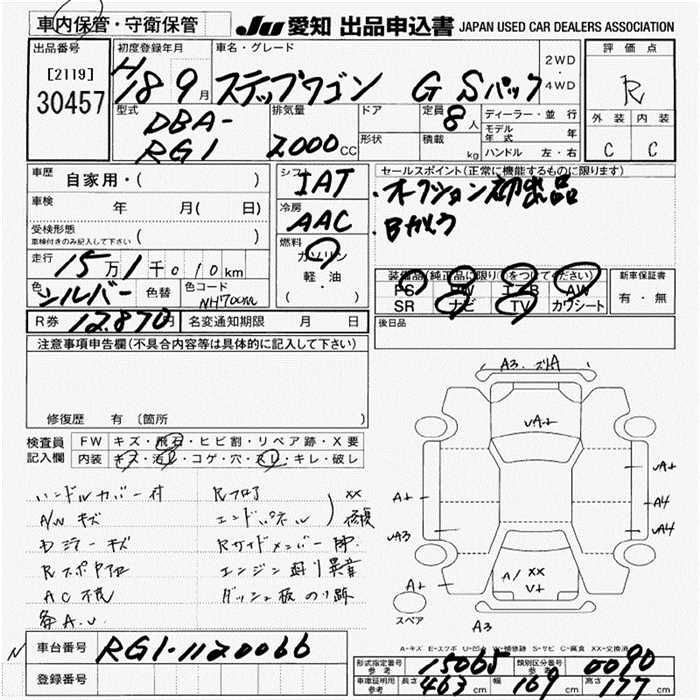 車内保管・守衛保管
JU 愛知 出品申込書 JAPAN USED CAR DEALERS ASSOCIATION
出品番号
[2119]
30457
初度登録年月
H18 9月
車名・グレード
ステップワゴン G Sパック
2WD
・
4WD
評価点
R
外装 内装
C C
型式
DBA-
RG1
排気量
2000cc
ドア
形状
定員
8人
積載
kg
ディーラー・並行
モデル年式 年
ハンドル 左・右
車歴
自家用・( )
車検
年 月( 日)
受検形態
車検付きのみ記入して下さい ( )
走行
15万1千010km
色
シルバー
色替
色コード
NH700m
R券
12.870円
名変通知期限 月 日
シフト
IAT
冷房
AAC
燃料
ガソリン
軽・油
( )
セールスポイント(正常に機能するものに限ります)
・オークション初出品
・Bカメラ
装備品(純正品に限り○をつけてください)
PS PW エアB AW
SR ナビ TV カワシート
新車保証書
有・無
後日品
注意事項申告欄(不具合内容等は具体的に記入して下さい)
修復歴 有 〔箇所 〕
検査員
記入欄
FW キズ・飛石・ヒビ割・リペア跡・X要
内装 キズ・汚レ・コゲ・穴・スレ・キレ・破レ
ハンドルカバー付
A/Wキズ
AC不良
各A.U
Rフロア
エンドパネル
XX
Rサイドメンバー
エンジン回り異音
ダッシュ板のり跡
A3
vA+
A+
vA3
A+
vA+
A4
vA4
A/ XX
V+
A3
スペア
A-キズ E-エクボ U-凹A W-補修跡 S-サビ C-腐食 XX-交換済
車台番号
RG1-1120066
登録番号
形式指定番号
参考
15065
類別区分番号
参考
0090
車庫証明用
参考
長さ 463cm
幅 169cm
高さ 177cm